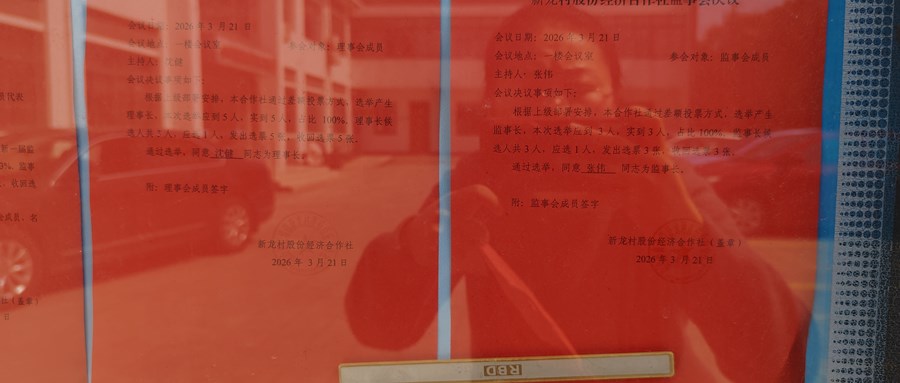 会议日期: 2026 年 3 月 21 日
会议地点: 一楼会议室 参会对象: 理事会成员
主持人:
会议决议事项如下:
根据上级部署安排, 本合作社通过差额投票方式, 选举产生
理事长, 本次选举应到 5 人, 实到 5 人, 占比 100%, 理事长候
选人共 2 人, 应选 1 人, 发出选票 5 张, 收回选票 5 张。
通过选举, 同意 同志为理事长。
附: 理事会成员签字
新龙村股份经济合作社
2026 年 3 月 21 日
新龙村股份经济合作社监事会决议
会议日期: 2026 年 3 月 21 日
会议地点: 一楼会议室 参会对象: 监事会成员
主持人: 张伟
会议决议事项如下:
根据上级部署安排, 本合作社通过差额投票方式, 选举产生
监事长, 本次选举应到 3 人, 实到 3 人, 占比 100%, 监事长候
选人共 3 人, 应选 1 人, 发出选票 3 张, 收回选票 3 张。
通过选举, 同意 张伟 同志为监事长。
附: 监事会成员签字
新龙村股份经济合作社 (盖章)
2026 年 3 月 21 日
RBD